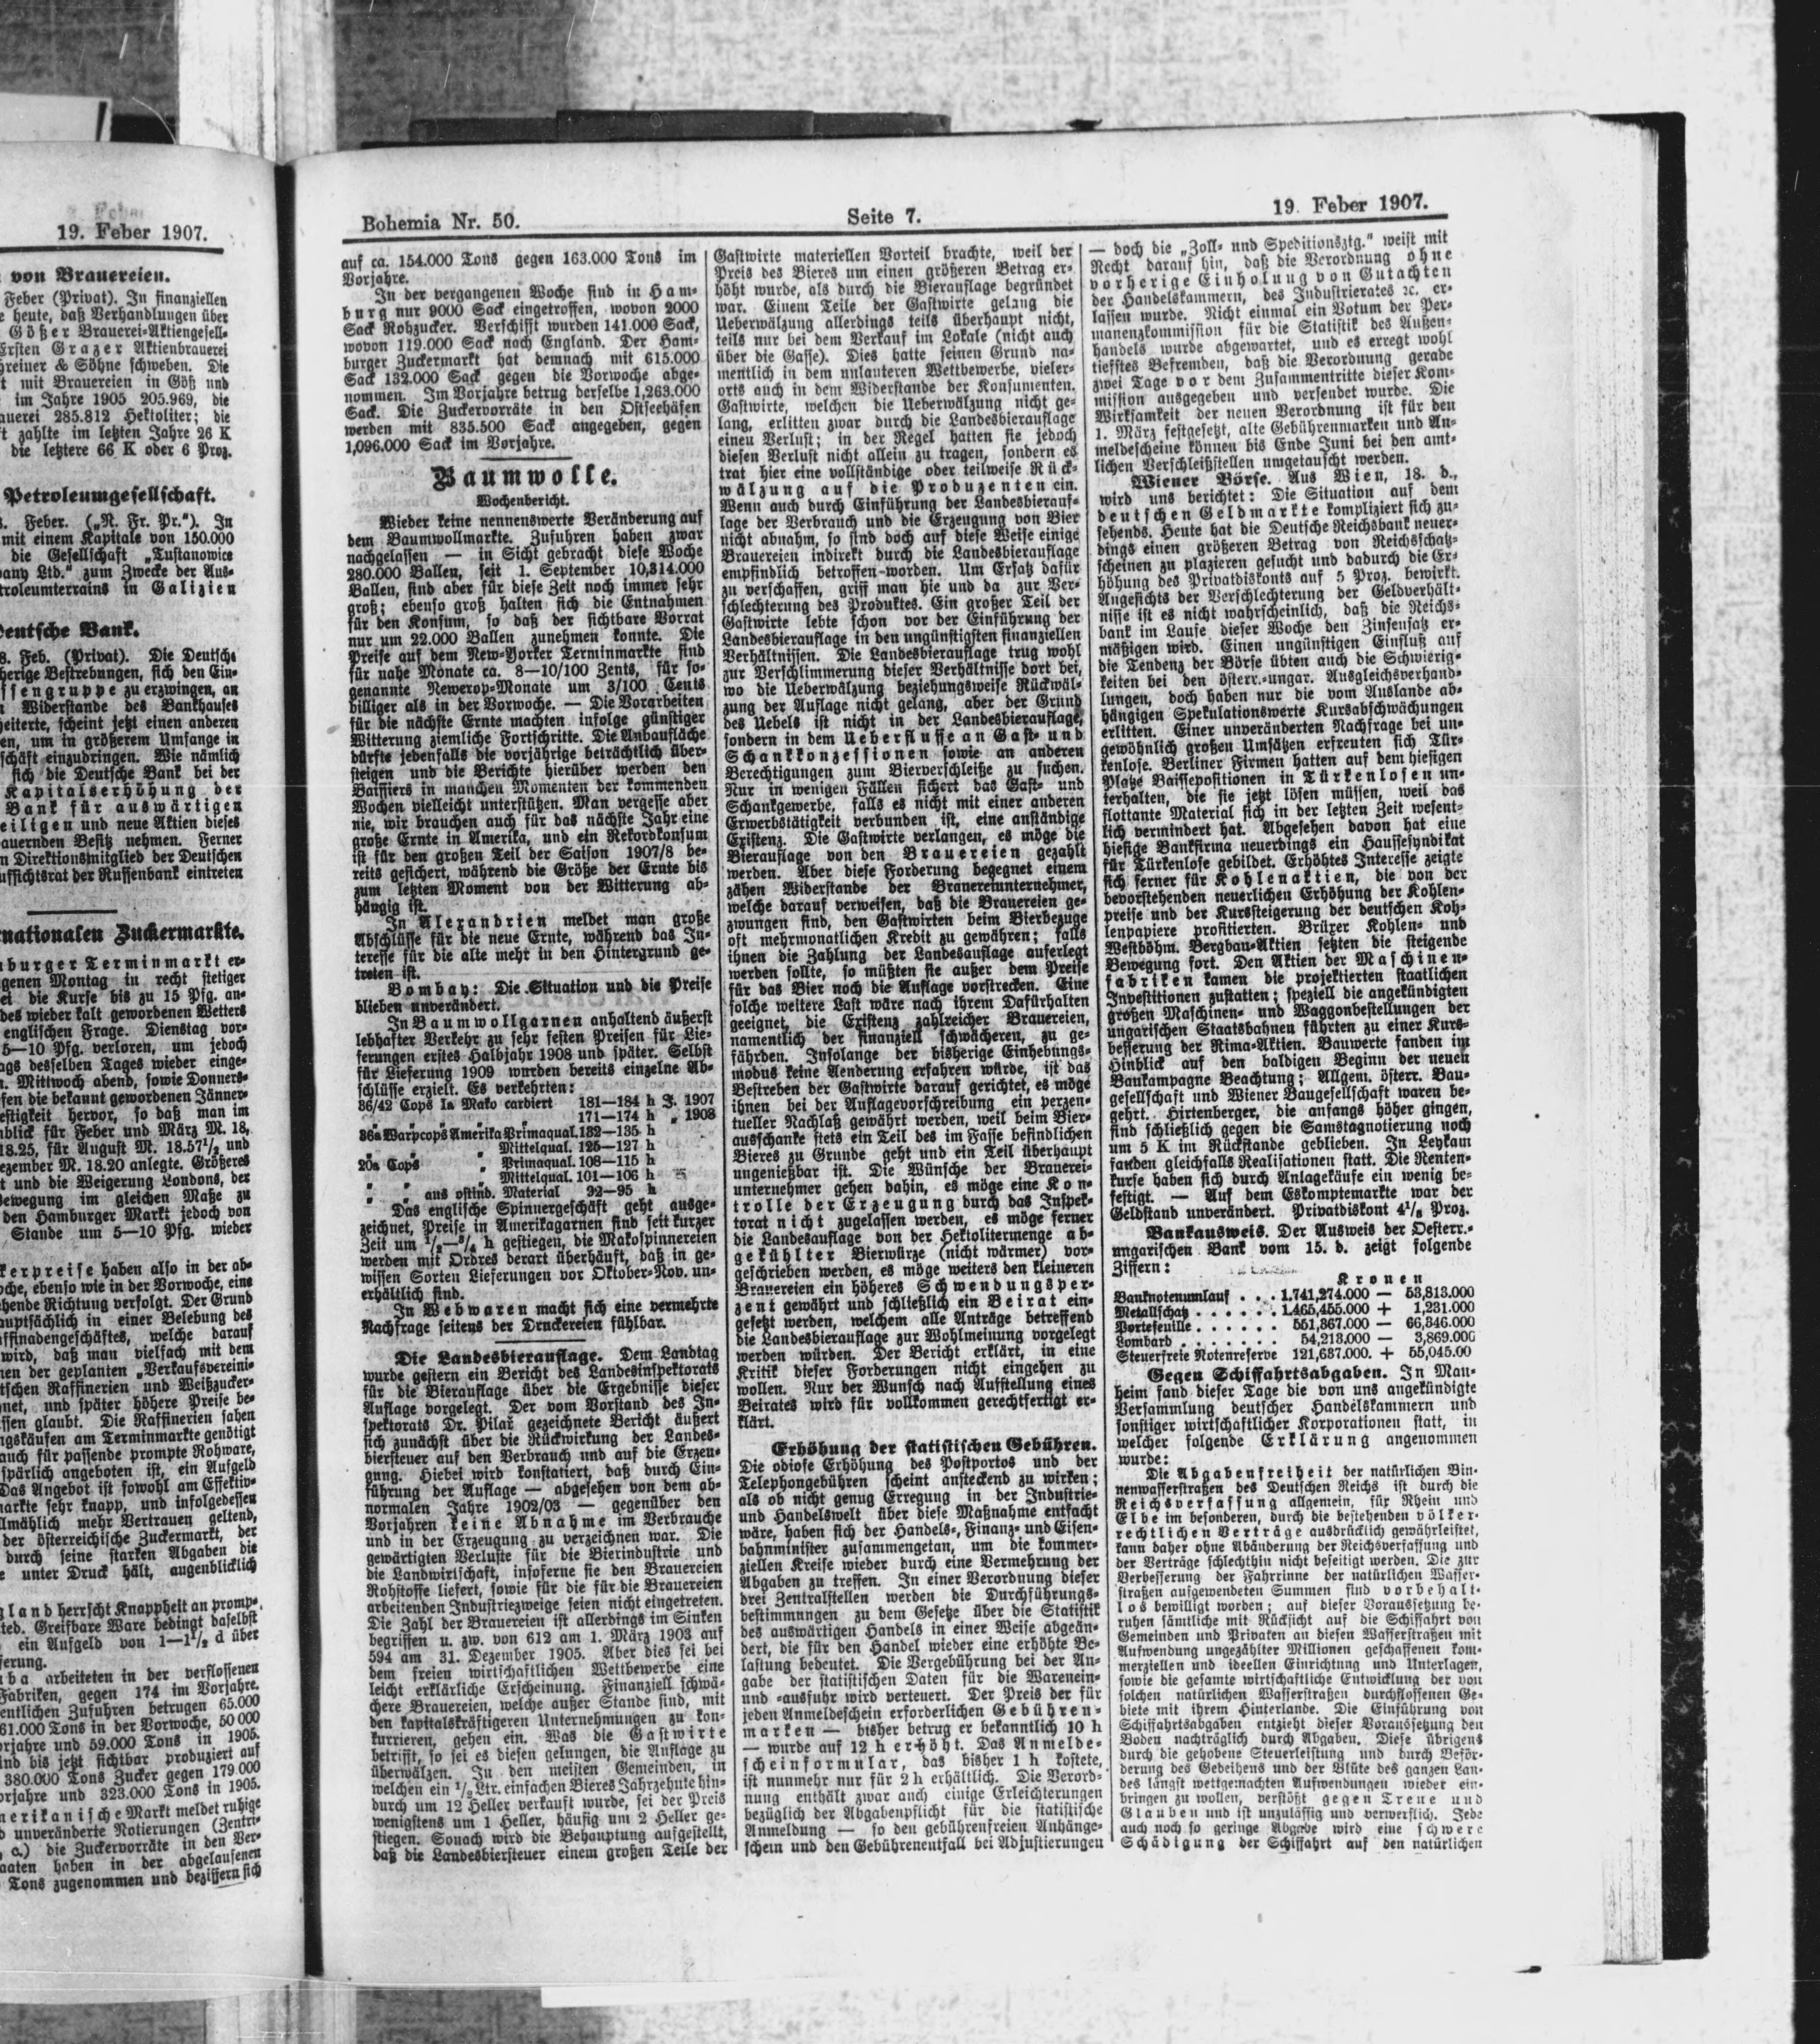 19. Feber 1907.
von Brauereien.
Feber (Privat). In finanziellen
heute, daß Verhandlungen über
Gößer Brauerei-Aktiengesell-
Ersten Grazer Aktienbrauerei
reiner & Söhne schweben. Die
mit Brauereien in Göß und
im Jahre 1905 205.969, die
auerei 285.812 Hektoliter; die
zahlte im letzten Jahre 26 K
die letztere 66 K oder 6 Proz.
Petroleumgesellschaft.
Feber. („N. Fr. Pr."). In
mit einem Kapitale von 150.000
die Gesellschaft „Tustanowice
any Ltd." zum Zwecke der Aus-
troleumterrains in Galizien
Deutsche Bank.
8. Feb. (Privat). Die Deutsche
herige Bestrebungen, sich den Ein-
ssengruppe zu erzwingen, an
Widerstande des Bankhauses
heiterte, scheint jetzt einen anderen
en, um in größerem Umfange in
schäft einzudringen. Wie nämlich
sich die Deutsche Bank bei der
Kapitalserhöhung der
Bank für auswärtigen
eiligen und neue Aktien dieses
auernden Besitz nehmen. Ferner
n Direktionsmitglied der Deutschen
ufsichtsrat der Russenbank eintreten
nationalen Zuckermarkte.
burger Terminmarkt er-
genen Montag in recht stetiger
ei die Kurse bis zu 15 Pfg. an-
des wieder kalt gewordenen Wetters
englischen Frage. Dienstag vor-
5—10 Pfg. verloren, um jedoch
ags desselben Tages wieder einge-
n. Mittwoch abend, sowie Donners-
fen die bekannt gewordenen Jänner-
estigkeit hervor, so daß man im
nblick für Feber und März M. 18,
18.25, für August M. 18.57½ und
ezember M. 18.20 anlegte. Größeres
t und die Weigerung Londons, der
Bewegung im gleichen Maße zu
den Hamburger Markt jedoch von
Stande um 5—10 Pfg. wieder
kerpreise haben also in der ab-
oche, ebenso wie in der Vorwoche, eine
hende Richtung verfolgt. Der Grund
auptsächlich in einer Belebung des
affinadengeschäftes, welche darauf
wird, daß man vielfach mit dem
men der geplanten „Verkaufsvereini-
tschen Raffinerien und Weißzucker-
net, und später höhere Preise be-
ssen glaubt. Die Raffinerien sahen
ngskäufen am Terminmarkte genötigt
auch für passende prompte Rohware,
spärlich angeboten ist, ein Aufgeld
Das Angebot ist sowohl am Effektiv-
arkte sehr knapp, und infolgedessen
llmählich mehr Vertrauen geltend,
der österreichische Zuckermarkt, der
durch seine starken Abgaben die
e unter Druck hält, augenblicklich
gland herrscht Knappheit an prompe,
ted. Greifbare Ware bedingt daselbst
ein Aufgeld von 1—1½ d über
ferung.
uba arbeiteten in der verflossenen
Fabriken, gegen 174 im Vorjahre.
entlichen Zufuhren betrugen 65.000
61.000 Tons in der Vorwoche, 50 000
orjahre und 59.000 Tons in 1905.
ind bis jetzt sichtbar produziert auf
380.000 Tons Zucker gegen 179 000
orjahre und 323.000 Tons in 1905.
merikanische Markt meldet ruhige
d unveränderte Notierungen (Zentri-
a.) die Zuckervorräte in den Ver-
aaten haben in der abgelaufenen
Tons zugenommen und beziffern sich
Bohemia Nr. 50. Seite 7. 19. Feber 1907.
auf ca. 154.000 Tons gegen 163.000 Tons im
Vorjahre.
In der vergangenen Woche sind in Ham-
burg nur 9000 Sack eingetroffen, wovon 2000
Sack Rohzucker. Verschifft wurden 141.000 Sack,
wovon 119.000 Sack nach England. Der Ham-
burger Zuckermarkt hat demnach mit 615.000
Sack 132.000 Sack gegen die Vorwoche abge-
nommen. Im Vorjahre betrug derselbe 1,263.000
Sack. Die Zuckervorräte in den Ostseehäfen
werden mit 835.500 Sack angegeben, gegen
1,096.000 Sack im Vorjahre.
Baumwolle.
Wochenbericht.
Wieder keine nennenswerte Veränderung auf
dem Baumwollmarkte. Zufuhren haben zwar
nachgelassen — in Sicht gebracht diese Woche
280.000 Ballen, seit 1. September 10,314.000
Ballen, sind aber für diese Zeit noch immer sehr
groß; ebenso groß halten sich die Entnahmen
für den Konsum, so daß der sichtbare Vorrat
nur um 22.000 Ballen zunehmen konnte. Die
Preise auf dem New-Yorker Terminmarkte sind
für nahe Monate ca. 8—10/100 Zents, für so-
genannte Newerop-Monate um 3/100 Cents
billiger als in der Vorwoche. — Die Vorarbeiten
für die nächste Ernte machten infolge günstiger
Witterung ziemliche Fortschritte. Die Anbaufläche
dürfte jedenfalls die vorjährige beträchtlich über-
steigen und die Berichte hierüber werden den
Baissiers in manchen Momenten der kommenden
Wochen vielleicht unterstützen. Man vergesse aber
nie, wir brauchen auch für das nächste Jahr eine
große Ernte in Amerika, und ein Rekordkonsum
ist für den großen Teil der Saison 1907/8 be-
reits gesichert, während die Größe der Ernte bis
zum letzten Moment von der Witterung ab-
hängig ist.
In Alexandrien meldet man große
Abschlüsse für die neue Ernte, während das In-
teresse für die alte mehr in den Hintergrund ge-
treten ist.
Bombay: Die Situation und die Preise
blieben unverändert.
In Baumwollgarnen anhaltend äußerst
lebhafter Verkehr zu sehr festen Preisen für Lie-
ferungen erstes Halbjahr 1908 und später. Selbst
für Lieferung 1909 wurden bereits einzelne Ab-
schlüsse erzielt. Es verkehrten:
36/42 Cops Ia Mako cardiert 181—184 h J. 1907
" " " " " 171—174 h " 1908
36a Warpcops Amerika Primaqual. 132—135 h
" " " Mittelqual. 125—127 h
20a Cops " Primaqual. 108—115 h
" " " Mittelqual. 101—106 h
" " aus ostind. Material 92—95 h
Das englische Spinnergeschäft geht ausge-
zeichnet, Preise in Amerikagarnen sind seit kurzer
Zeit um ½—¾ h gestiegen, die Makospinnereien
werden mit Ordres derart überhäuft, daß in ge-
wissen Sorten Lieferungen vor Oktober-Nov. un-
erhältlich sind.
In Webwaren macht sich eine vermehrte
Nachfrage seitens der Druckereien fühlbar.
Die Landesbierauflage. Dem Landtag
wurde gestern ein Bericht des Landesinspektorats
für die Bierauflage über die Ergebnisse dieser
Auflage vorgelegt. Der vom Vorstand des In-
spektorats Dr. Pilař gezeichnete Bericht äußert
sich zunächst über die Rückwirkung der Landes-
biersteuer auf den Verbrauch und auf die Erzeu-
gung. Hiebei wird konstatiert, daß durch Ein-
führung der Auflage — abgesehen von dem ab-
normalen Jahre 1902/03 — gegenüber den
Vorjahren keine Abnahme im Verbrauche
und in der Erzeugung zu verzeichnen war. Die
gewärtigten Verluste für die Bierindustrie und
die Landwirtschaft, insoferne sie den Brauereien
Rohstoffe liefert, sowie für die für die Brauereien
arbeitenden Industriezweige seien nicht eingetreten.
Die Zahl der Brauereien ist allerdings im Sinken
begriffen u. zw. von 612 am 1. März 1903 auf
594 am 31. Dezember 1905. Aber dies sei bei
dem freien wirtschaftlichen Wettbewerbe eine
leicht erklärliche Erscheinung. Finanziell schwä-
chere Brauereien, welche außer Stande sind, mit
den kapitalskräftigeren Unternehmungen zu kon-
kurrieren, gehen ein. Was die Gastwirte
betrifft, so sei es diesen gelungen, die Auflage zu
überwälzen. In den meisten Gemeinden, in
welchen ein ½ Ltr. einfachen Bieres Jahrzehnte hin-
durch um 12 Heller verkauft wurde, sei der Preis
wenigstens um 1 Heller, häufig um 2 Heller ge-
stiegen. Sonach wird die Behauptung aufgestellt,
daß die Landesbiersteuer einem großen Teile der
Gastwirte materiellen Vorteil brachte, weil der
Preis des Bieres um einen größeren Betrag er-
höht wurde, als durch die Bierauflage begründet
war. Einem Teile der Gastwirte gelang die
Ueberwälzung allerdings teils überhaupt nicht,
teils nur bei dem Verkauf im Lokale (nicht auch
über die Gasse). Dies hatte seinen Grund na-
mentlich in dem unlauteren Wettbewerbe, vieler-
orts auch in dem Widerstande der Konsumenten.
Gastwirte, welchen die Ueberwälzung nicht ge-
lang, erlitten zwar durch die Landesbierauflage
einen Verlust; in der Regel hatten sie jedoch
diesen Verlust nicht allein zu tragen, sondern es
trat hier eine vollständige oder teilweise Rück-
wälzung auf die Produzenten ein.
Wenn auch durch Einführung der Landesbierauf-
lage der Verbrauch und die Erzeugung von Bier
nicht abnahm, so sind doch auf diese Weise einige
Brauereien indirekt durch die Landesbierauflage
empfindlich betroffen worden. Um Ersatz dafür
zu verschaffen, griff man hie und da zur Ver-
schlechterung des Produktes. Ein großer Teil der
Gastwirte lebte schon vor der Einführung der
Landesbierauflage in den ungünstigsten finanziellen
Verhältnissen. Die Landesbierauflage trug wohl
zur Verschlimmerung dieser Verhältnisse dort bei,
wo die Ueberwälzung beziehungsweise Rückwäl-
zung der Auflage nicht gelang, aber der Grund
des Uebels ist nicht in der Landesbierauflage,
sondern in dem Ueberflusse an Gast- und
Schankkonzessionen sowie an anderen
Berechtigungen zum Bierverschleiße zu suchen.
Nur in wenigen Fällen sichert das Gast- und
Schankgewerbe, falls es nicht mit einer anderen
Erwerbstätigkeit verbunden ist, eine anständige
Existenz. Die Gastwirte verlangen, es möge die
Bierauflage von den Brauereien gezahlt
werden. Aber diese Forderung begegnet einem
zähen Widerstande der Brauereiunternehmer,
welche darauf verweisen, daß die Brauereien ge-
zwungen sind, den Gastwirten beim Bierbezuge
oft mehrmonatlichen Kredit zu gewähren; falls
ihnen die Zahlung der Landesauflage auferlegt
werden sollte, so müßten sie außer dem Preise
für das Bier noch die Auflage vorstrecken. Eine
solche weitere Last wäre nach ihrem Dafürhalten
geeignet, die Existenz zahlreicher Brauereien,
namentlich der finanziell schwächeren, zu ge-
fährden. Insolange der bisherige Einhebungs-
modus keine Aenderung erfahren würde, ist das
Bestreben der Gastwirte darauf gerichtet, es möge
ihnen bei der Auflagevorschreibung ein perzen-
tueller Nachlaß gewährt werden, weil beim Bier-
ausschanke stets ein Teil des im Fasse befindlichen
Bieres zu Grunde geht und ein Teil überhaupt
ungenießbar ist. Die Wünsche der Brauerei-
unternehmer gehen dahin, es möge eine Kon-
trolle der Erzeugung durch das Inspek-
torat nicht zugelassen werden, es möge ferner
die Landesauflage von der Hektolitermenge ab-
gekühlter Bierwürze (nicht wärmer) vor-
geschrieben werden, es möge weiters den kleineren
Brauereien ein höheres Schwendungsper-
zent gewährt und schließlich ein Beirat ein-
gesetzt werden, welchem alle Anträge betreffend
die Landesbierauflage zur Wohlmeinung vorgelegt
werden würden. Der Bericht erklärt, in eine
Kritik dieser Forderungen nicht eingehen zu
wollen. Nur der Wunsch nach Aufstellung eines
Beirates wird für vollkommen gerechtfertigt er-
klärt.
Erhöhung der statistischen Gebühren.
Die odiose Erhöhung des Postportos und der
Telephongebühren scheint ansteckend zu wirken;
als ob nicht genug Erregung in der Industrie-
und Handelswelt über diese Maßnahme entfacht
wäre, haben sich der Handels-, Finanz- und Eisen-
bahnminister zusammengetan, um die kommer-
ziellen Kreise wieder durch eine Vermehrung der
Abgaben zu treffen. In einer Verordnung dieser
drei Zentralstellen werden die Durchführungs-
bestimmungen zu dem Gesetze über die Statistik
des auswärtigen Handels in einer Weise abgeän-
dert, die für den Handel wieder eine erhöhte Be-
lastung bedeutet. Die Vergebührung bei der An-
gabe der statistischen Daten für die Warenein-
und -ausfuhr wird verteuert. Der Preis der für
jeden Anmeldeschein erforderlichen Gebühren-
marken — bisher betrug er bekanntlich 10 h
— wurde auf 12 h erhöht. Das Anmelde-
scheinformular, das bisher 1 h kostete,
ist nunmehr nur für 2 h erhältlich. Die Verord-
nung enthält zwar auch einige Erleichterungen
bezüglich der Abgabenpflicht für die statistische
Anmeldung — so den gebührenfreien Anhänge-
schein und den Gebührenentfall bei Adjustierungen
— doch die „Zoll- und Speditionsztg." weist mit
Recht darauf hin, daß die Verordnung ohne
vorherige Einholung von Gutachten
der Handelskammern, des Industrierates 2c. er-
lassen wurde. Nicht einmal ein Votum der Per-
manenzkommission für die Statistik des Außen-
handels wurde abgewartet, und es erregt wohl
tiefstes Befremden, daß die Verordnung gerade
zwei Tage vor dem Zusammentritte dieser Kom-
mission ausgegeben und versendet wurde. Die
Wirksamkeit der neuen Verordnung ist für den
1. März festgesetzt, alte Gebührenmarken und An-
meldescheine können bis Ende Juni bei den amt-
lichen Verschleißstellen umgetauscht werden.
Wiener Börse. Aus Wien, 18. d.,
wird uns berichtet: Die Situation auf dem
deutschen Geldmarkte kompliziert sich zu-
sehends. Heute hat die Deutsche Reichsbank neuer-
dings einen größeren Betrag von Reichsschatz-
scheinen zu plazieren gesucht und dadurch die Er-
höhung des Privatdiskonts auf 5 Proz. bewirkt.
Angesichts der Verschlechterung der Geldverhält-
nisse ist es nicht wahrscheinlich, daß die Reichs-
bank im Laufe dieser Woche den Zinsensatz er-
mäßigen wird. Einen ungünstigen Einfluß auf
die Tendenz der Börse übten auch die Schwierig-
keiten bei den österr.-ungar. Ausgleichsverhand-
lungen, doch haben nur die vom Auslande ab-
hängigen Spekulationswerte Kursabschwächungen
erlitten. Einer unveränderten Nachfrage bei un-
gewöhnlich großen Umsätzen erfreuten sich Tür-
kenlose. Berliner Firmen hatten auf dem hiesigen
Platze Baissepositionen in Türkenlosen un-
terhalten, die sie jetzt lösen müssen, weil das
flottante Material sich in der letzten Zeit wesent-
lich vermindert hat. Abgesehen davon hat eine
hiesige Bankfirma neuerdings ein Haussesyndikat
für Türkenlose gebildet. Erhöhtes Interesse zeigte
sich ferner für Kohlenaktien, die von der
bevorstehenden neuerlichen Erhöhung der Kohlen-
preise und der Kurssteigerung der deutschen Koh-
lenpapiere profitierten. Brüxer Kohlen- und
Westböhm. Bergbau-Aktien setzten die steigende
Bewegung fort. Den Aktien der Maschinen-
fabriken kamen die projektierten staatlichen
Investitionen zustatten; speziell die angekündigten
großen Maschinen- und Waggonbestellungen der
ungarischen Staatsbahnen führten zu einer Kurs-
besserung der Rima-Aktien. Bauwerte fanden im
Hinblick auf den baldigen Beginn der neuen
Baukampagne Beachtung; Allgem. österr. Bau-
gesellschaft und Wiener Baugesellschaft waren be-
gehrt. Hirtenberger, die anfangs höher gingen,
sind schließlich gegen die Samstagnotierung noch
um 5 K im Rückstande geblieben. In Leykam
fanden gleichfalls Realisationen statt. Die Renten-
kurse haben sich durch Anlagekäufe ein wenig be-
festigt. — Auf dem Eskomptemarkte war der
Geldstand unverändert. Privatdiskont 4⅛ Proz.
Bankausweis. Der Ausweis der Oesterr.-
ungarischen Bank vom 15. d. zeigt folgende
Ziffern:
Kronen
Banknotenumlauf . . . 1.741,274.000 — 53,813.000
Metallschatz . . . . . . 1.465,455.000 + 1,231.000
Portefeuille . . . . . . 551,867.000 — 66,346.000
Lombard . . . . . . . 54,213.000 — 3,869.000
Steuerfreie Notenreserve 121,637.000. + 55,045.00
Gegen Schiffahrtsabgaben. In Man-
heim fand dieser Tage die von uns angekündigte
Versammlung deutscher Handelskammern und
sonstiger wirtschaftlicher Korporationen statt, in
welcher folgende Erklärung angenommen
wurde:
Die Abgabenfreiheit der natürlichen Bin-
nenwasserstraßen des Deutschen Reichs ist durch die
Reichsverfassung allgemein, für Rhein und
Elbe im besonderen, durch die bestehenden völker-
rechtlichen Verträge ausdrücklich gewährleistet,
kann daher ohne Abänderung der Reichsverfassung und
der Verträge schlechthin nicht beseitigt werden. Die zur
Verbesserung der Fahrrinne der natürlichen Wasser-
straßen aufgewendeten Summen sind vorbehalt-
los bewilligt worden; auf dieser Voraussetzung be-
ruhen sämtliche mit Rücksicht auf die Schiffahrt von
Gemeinden und Privaten an diesen Wasserstraßen mit
Aufwendung ungezählter Millionen geschaffenen kom-
merziellen und ideellen Einrichtung und Unterlagen,
sowie die gesamte wirtschaftliche Entwicklung der von
solchen natürlichen Wasserstraßen durchflossenen Ge-
biete mit ihrem Hinterlande. Die Einführung von
Schiffahrtsabgaben entzieht dieser Voraussetzung den
Boden nachträglich durch Abgaben. Diese übrigens
durch die gehobene Steuerleistung und durch Beför-
derung des Gedeihens und der Blüte des ganzen Lan-
des längst wettgemachten Aufwendungen wieder ein-
bringen zu wollen, verstößt gegen Treue und
Glauben und ist unzulässig und verwerflich. Jede
auch noch so geringe Abgabe wird eine schwere
Schädigung der Schiffahrt auf den natürlichen